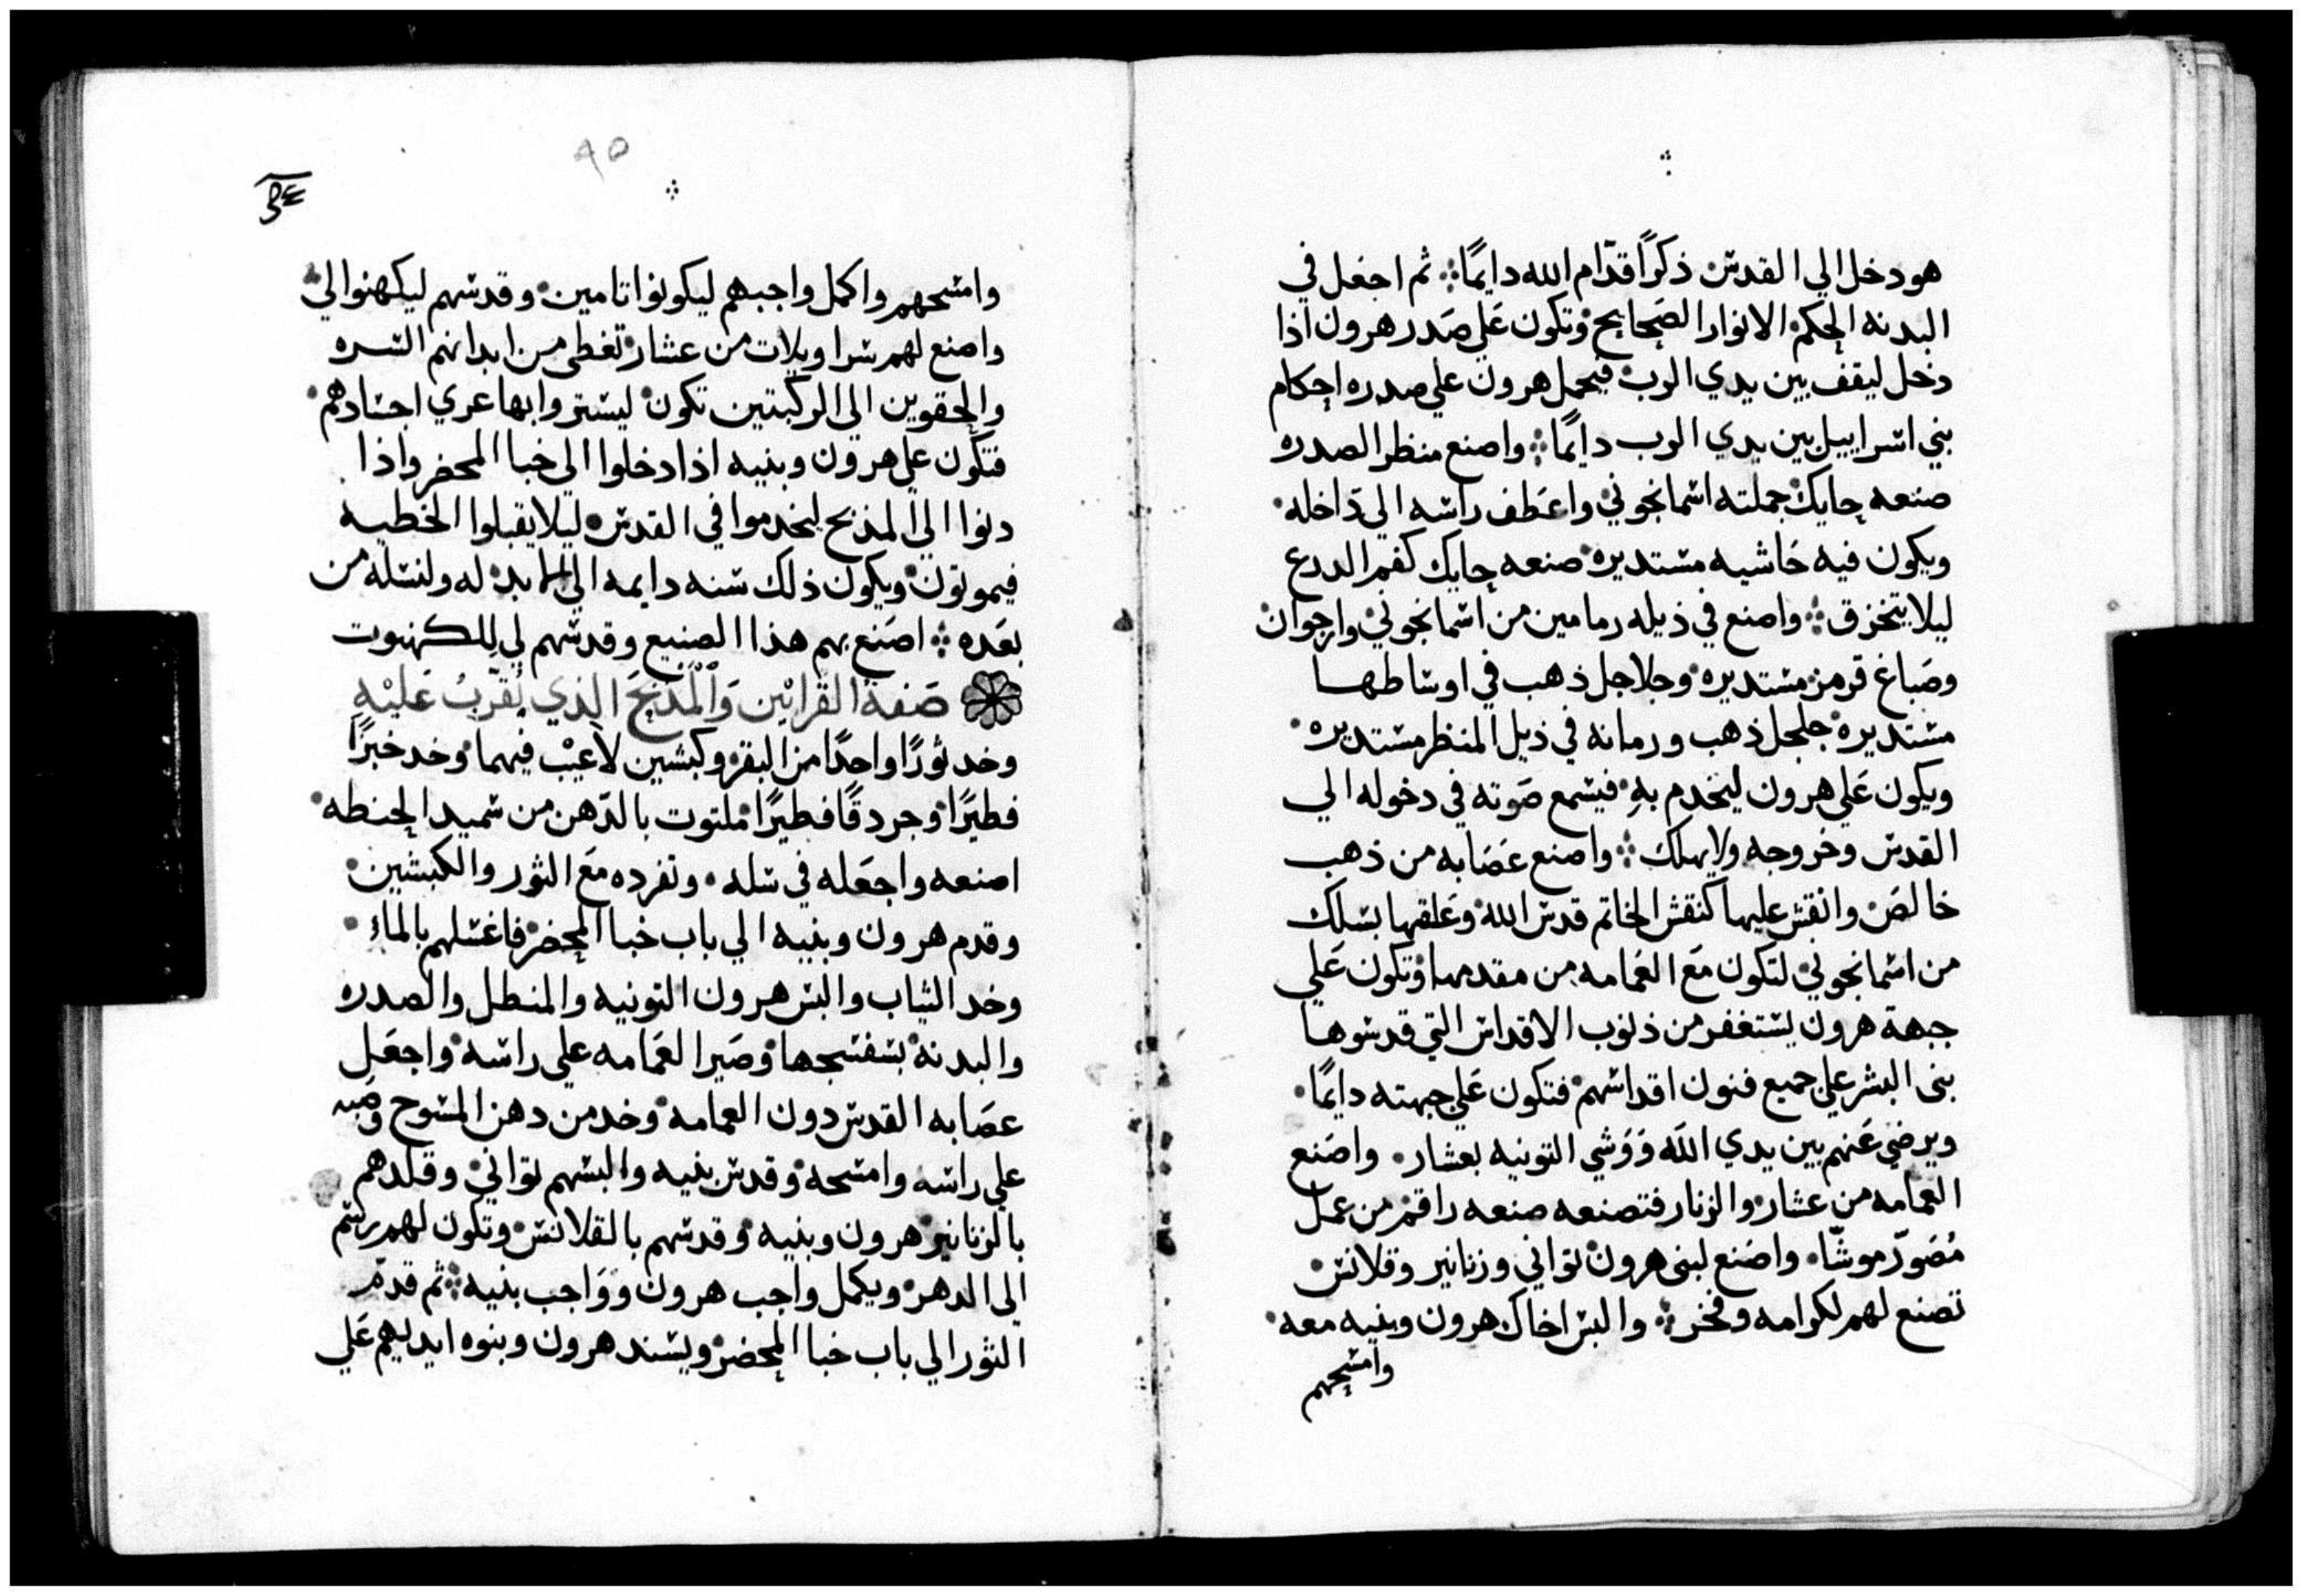 هو دخل الي القدس ذكرًا قدّام الله دايمًا ثم اجعل في
البدنه الحكم الانوار الصَحايح وَتكون عَلي صَدر هرون اذا
دخل ليقف بين يدي الرب فيحمل هرون علي صدره احكام
بني اسراييل بين يدي الرب دايمًا واصنع منظر الصدره
صنعه حايك جملته اسمانجوني واعَطف راسه الي دَاخله
ويكون فيه حَاشيه مستديره صنعه حايك كفم الدرع
ليلا يتخزق واصنع في ذيله رمامين من اسمانجوني وارجوان
وصَباغ قرمز مستديره وجلاجل ذهب في اوساطها
مستديره جلجل ذهب ورمانه في ذيل المنظر مستديره
ويكون عَلي هرون ليخدم بهِ فيسمع صَوته في دخوله الي
القدس وخروجه ولا يهلك واصنع عَصَابه من ذهب
خالصَ وانقش عليها كنقش الخاتم قدس الله وعَلقها بسلك
من اسمانجوني لتكون مَع العَمامه من مقدمها وتكون عَلي
جبهة هرون يستغفر من ذنوب الاقداس التي قدسوها
بنى البشر علي جميع فنون اقداسهم فتكون عَلي جبهته دايمًا
ويرضي عَنهم بين يدي اللَه وَوَشي التونيه بعشار واصَنع
العَمامه من عشار والزنار فتصنعه صنعه راقم من عمل
مُصَوّر موشّا واصَنع لبنى هرون تواني وزنانير وقلانس
تصنع لهم لكرامه وفخر والبس اخاك هرون وبنيه معه
وامسحهم
٩٥
وامسحهم واكمل واجبهم ليكونوا تامين وقدسهم ليكهنوا لي
واصنع لهم سراويلات من عشار تغطى من ابدانهم السره
والحقوين الى الركبتين تكون ليستروا بها عري اجسادهم
فتكون علي هرون وبنيه اذا دخلوا الي خبا المحضر واذا
دنوا الي المذبح ليخدموا في القدس ليلا يقبلوا الخطيه
فيموتون ويكون ذلك سنه دايمه الي الابد له ولنسله من
بعَده اصَنع بهم هذا الصنيع وقدسهم لي للكهنوت
صَفة القَرابْين وَالْمَذبَح الذي يُقرّبُ عَليْهِ
وخد ثورًا واحدًا من البقر وكبشين لاعيْب فيهما وخد خبزًا
فطيرًا وجردقًا فطيرًا ملتوت بالدّهن من سميد الحنطه
اصنعه واجعَله في سله وتفرده مَع الثور والكبشين
وقدم هرون وبنيه الي باب خبا المحضر فاغسلهم بالماء
وخد الثياب والبس هرون التونيه والمنطل والصدره
والبدنه بسفسجها وصَير العَمامه علي راسه واجعَل
عصَابه القدس دون العمامه وخد من دهن المسوح وصبه
علي راسه وامسحه وقدس بنيه والبسهم تواني وقلدهم
بالزنانير هرون وبنيه وقدسهم بالقلانس وتكون لهم رستم
الي الدهر ويكمل واجب هرون ووَاجب بنيه ثم قدمّ
الثور الي باب خبا المحضر ويسند هرون وبنوه ايديهم عَلي